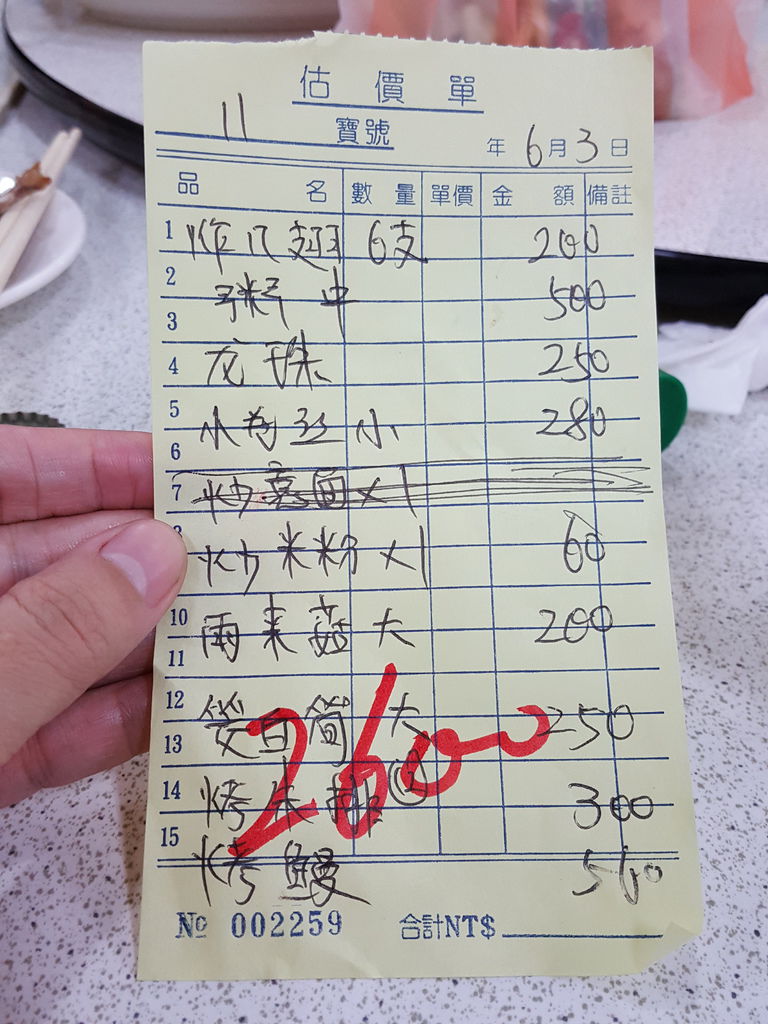 估價單
11 寶號 年6月3日
品名 數量 單價 金額 備註
1 炸几翅 6支 200
2
3 中 500
4 龙珠 250
5
6 小卷丝 小 280
7 炒意面x1
炒米粉x1 60
10 雨来菇 大 200
11
12
13 筊白筍 大 250
14 烤 排 ② 300
15
烤鰻 560
2600
№ 002259 合計NT$